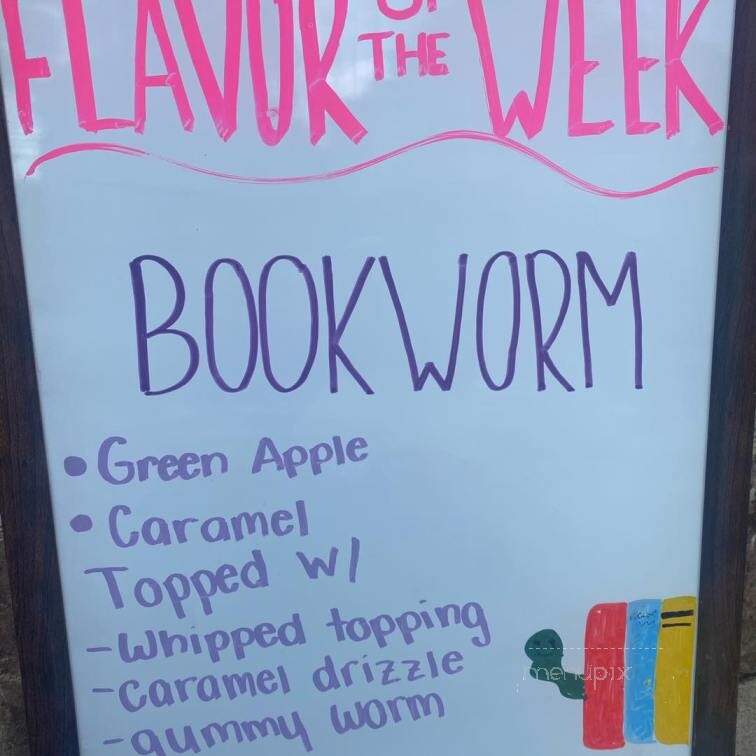 FLAVOR OF THE WEEK
BOOKWORM
• Green Apple
• Caramel
Topped w/
-Whipped topping
-caramel drizzle
-gummy worm
menupix